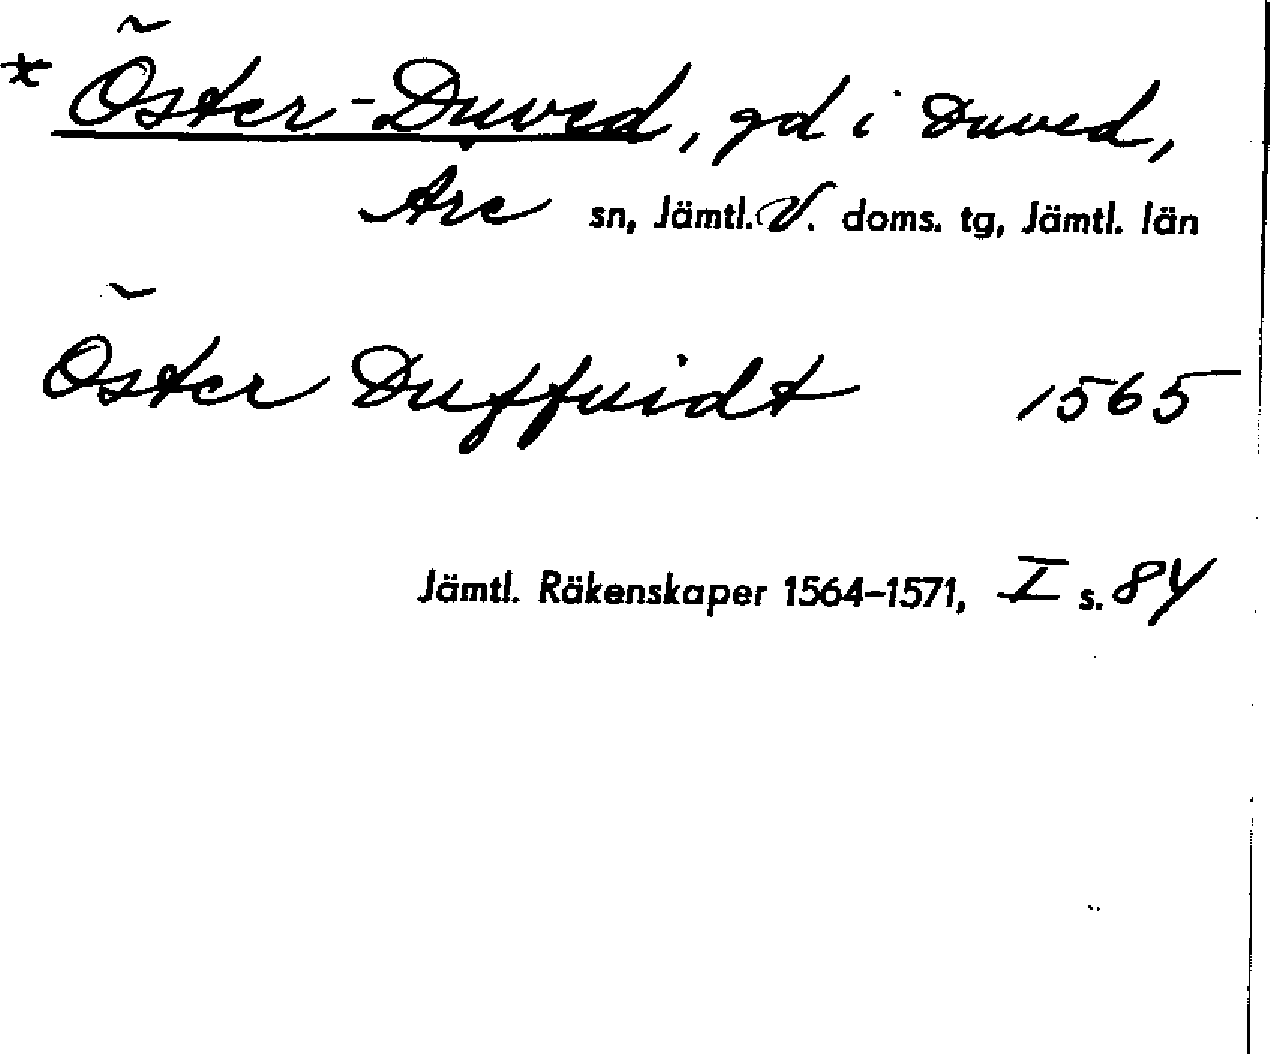 * Öster-Duved, gd i Duved,
Åre sn, Jämtl. V. doms. tg, Jämtl. län
Öster Duffuidt 1565
Jämtl. Räkenskaper 1564-1571, I s. 84